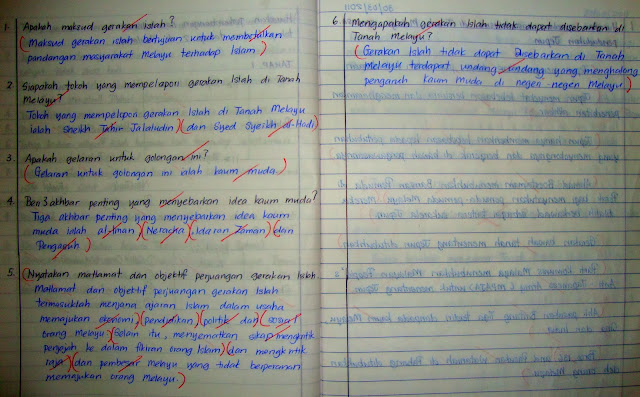 1. Apakah maksud gerakan islah?
(Maksud gerakan islah bertujuan untuk membetulkan
pandangan masyarakat Melayu terhadap Islam)
2. Siapakah tokoh yang mempelopori gerakan Islah di Tanah
Melayu?
Tokoh yang mempelopori gerakan Islah di Tanah Melayu
ialah Sheikh Tahir Jalaludin)(dan Syed Syeikh al-Hadi)
3. Apakah gelaran untuk golongan ini?
(Gelaran untuk golongan ini ialah kaum muda)
4. Beri 3 akhbar penting yang menyebarkan idea kaum muda?
Tiga akhbar penting yang menyebarkan idea kaum
muda ialah al-Iman)(Neracha)(Idaran Zaman)(dan
Pengasuh)
5. (Nyatakan matlamat dan objektif perjuangan gerakan Islah
Matlamat dan objektif perjuangan gerakan Islah
termasuklah menjana ajaran Islam dalam usaha
memajukan ekonomi)(pendidikan)(politik dan)(sosial)
orang melayu)(Selain itu, menyematkan sikap mengkritik
penjajah ke dalam fikiran orang Islam)(dan mengkritik
raja)(dan pembesar Melayu yang tidak berperanan
memajukan orang Melayu.)
6. Mengapakah gerakan Islah tidak dapat disebarkan di
Tanah Melayu?
(Gerakan Islah tidak dapat Disebarkan di Tanah
Melayu terdapat undang-undang yang menghalang
pengaruh kaum Muda di negeri-negeri Melayu)